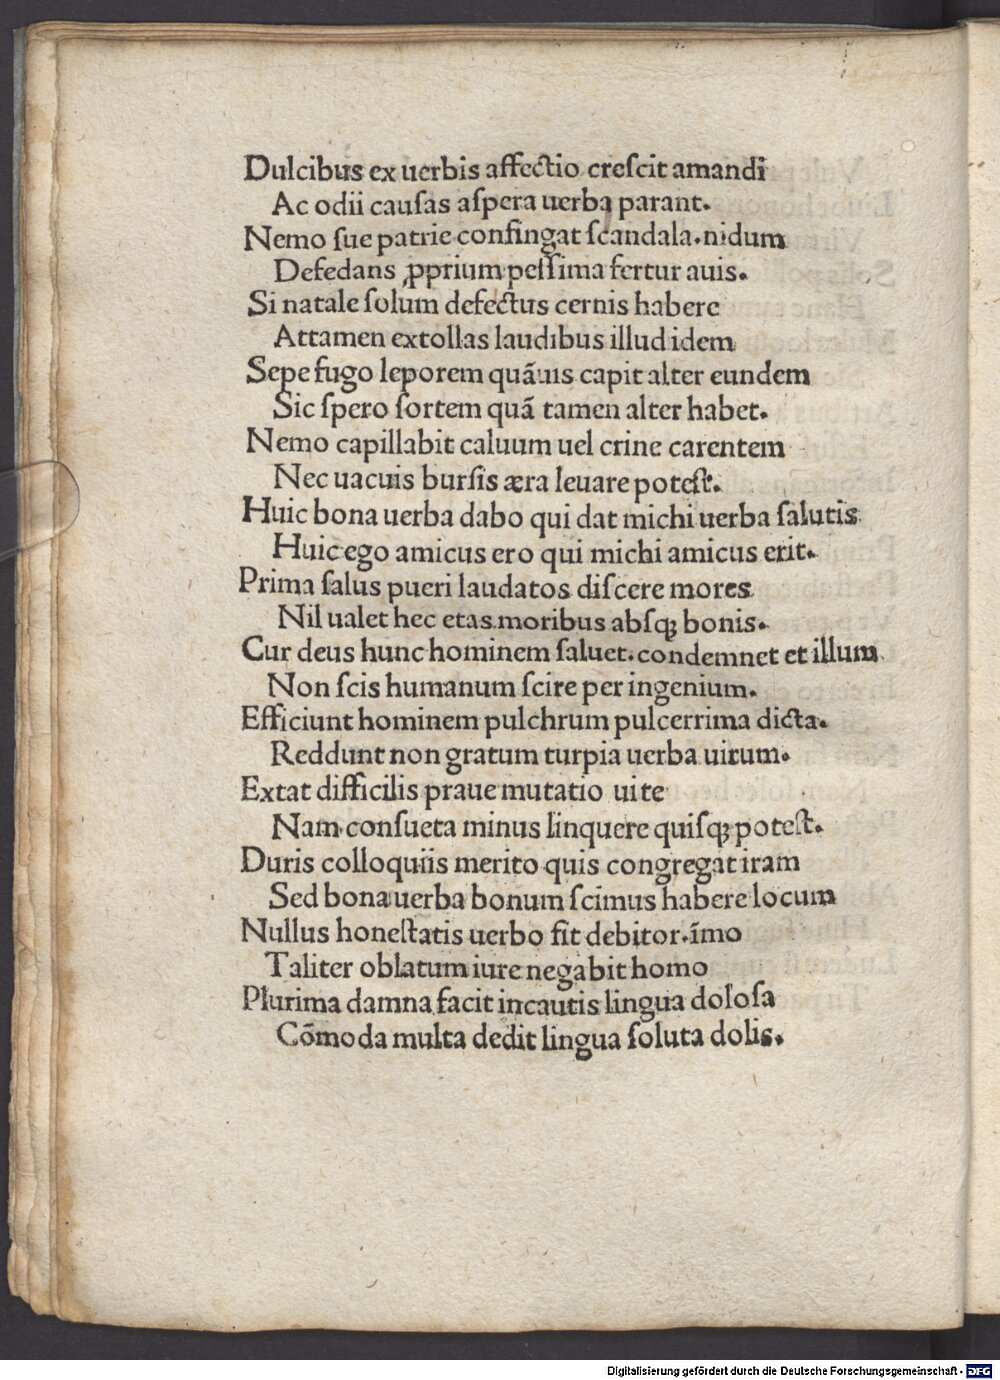 Dulcibus ex uerbis affectio creſcit amandi
Ac odii cauſas aſpera uerba parant.
Nemo ſue patrie confingat ſcandala.nidum
Defedans ꝓprium peſſima fertur auis.
Si natale ſolum defectus cernis habere
Attamen extollas laudibus illud idem
Sepe fugo leporem quãuis capit alter eundem
Sic ſpero ſortem quã tamen alter habet.
Nemo capillabit caluum uel crine carentem
Nec uacuis burſis æra leuare poteſt.
Huic bona uerba dabo qui dat michi uerba ſalutis
Huic ego amicus ero qui michi amicus erit.
Prima ſalus pueri laudatos diſcere mores
Nil ualet hec etas moribus abſqꝫ bonis.
Cur deus hunc hominem ſaluet.condemnet et illum
Non ſcis humanum ſcire per ingenium.
Efficiunt hominem pulchrum pulcerrima dicta.
Reddunt non gratum turpia uerba uirum.
Extat difficilis praue mutatio uite
Nam conſueta minus linquere quiſqꝫ poteſt.
Duris colloquiis merito quis congregat iram
Sed bona uerba bonum ſcimus habere locum
Nullus honeſtatis uerbo fit debitor.ĩmo
Taliter oblatum iure negabit homo
Plurima damna facit incautis lingua doloſa
Cõmoda multa dedit lingua ſoluta dolis.
Digitalisierung gefördert durch die Deutsche Forschungsgemeinschaft - DFG